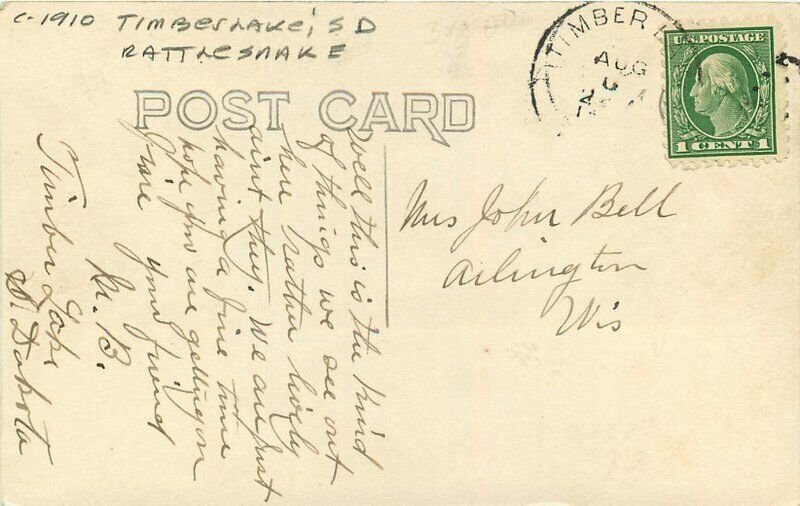 C-1910 TIMBERLAKE, SD
RATTLESNAKE
TIMBER
AUG
6
U.S. POSTAGE
1 CENT 1
POST CARD
Well this is the kind
of things we see out
here rather lively
aint they. We are just
having a fine time
hope you are getting on
fine your friend
B.
Timber Lake
S. Dakota
Mrs John Bell
Arlington
Wis